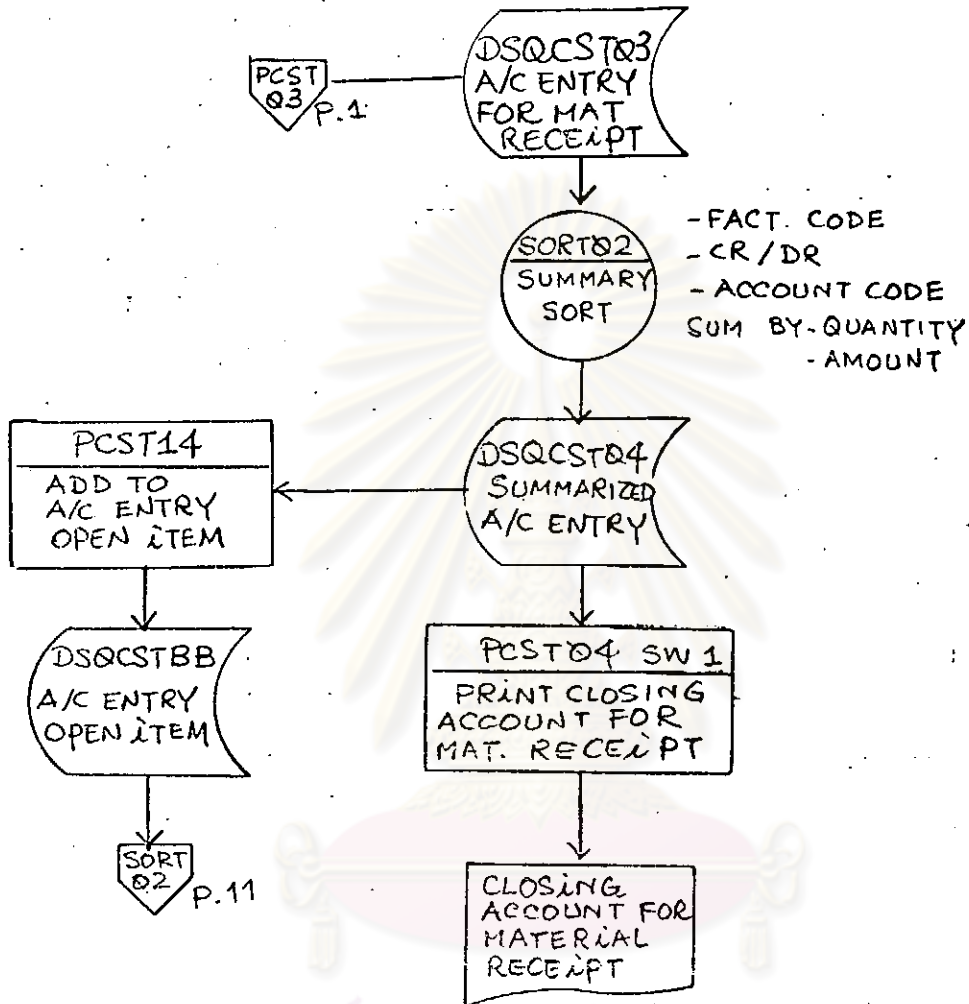 PCST
Ø3
P.1
DSQCSTØ3
A/C ENTRY
FOR MAT
RECEIPT
SORTØ2
SUMMARY
SORT
- FACT. CODE
- CR/DR
- ACCOUNT CODE
SUM BY - QUANTITY
- AMOUNT
PCST14
ADD TO
A/C ENTRY
OPEN ITEM
DSQCSTØ4
SUMMARIZED
A/C ENTRY
DSQCSTBB
A/C ENTRY
OPEN ITEM
PCSTØ4 SW 1
PRINT CLOSING
ACCOUNT FOR
MAT. RECEIPT
SORT
Ø2
P.11
CLOSING
ACCOUNT FOR
MATERIAL
RECEIPT